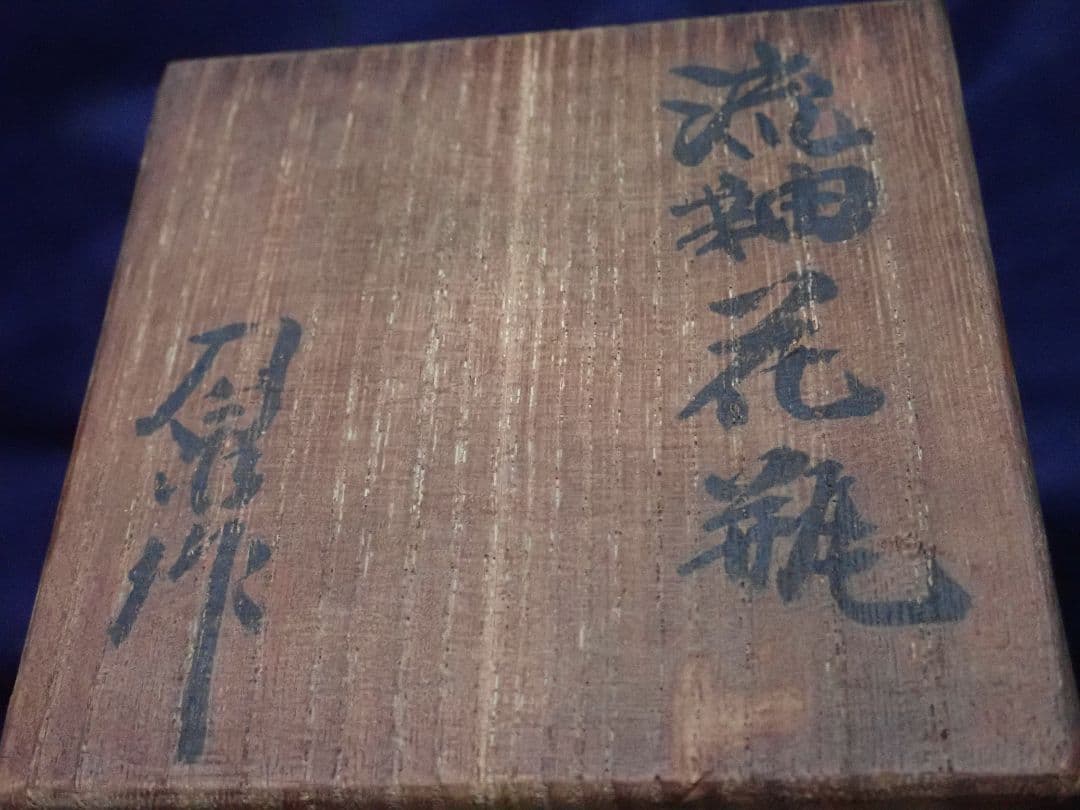 流釉花瓶
作